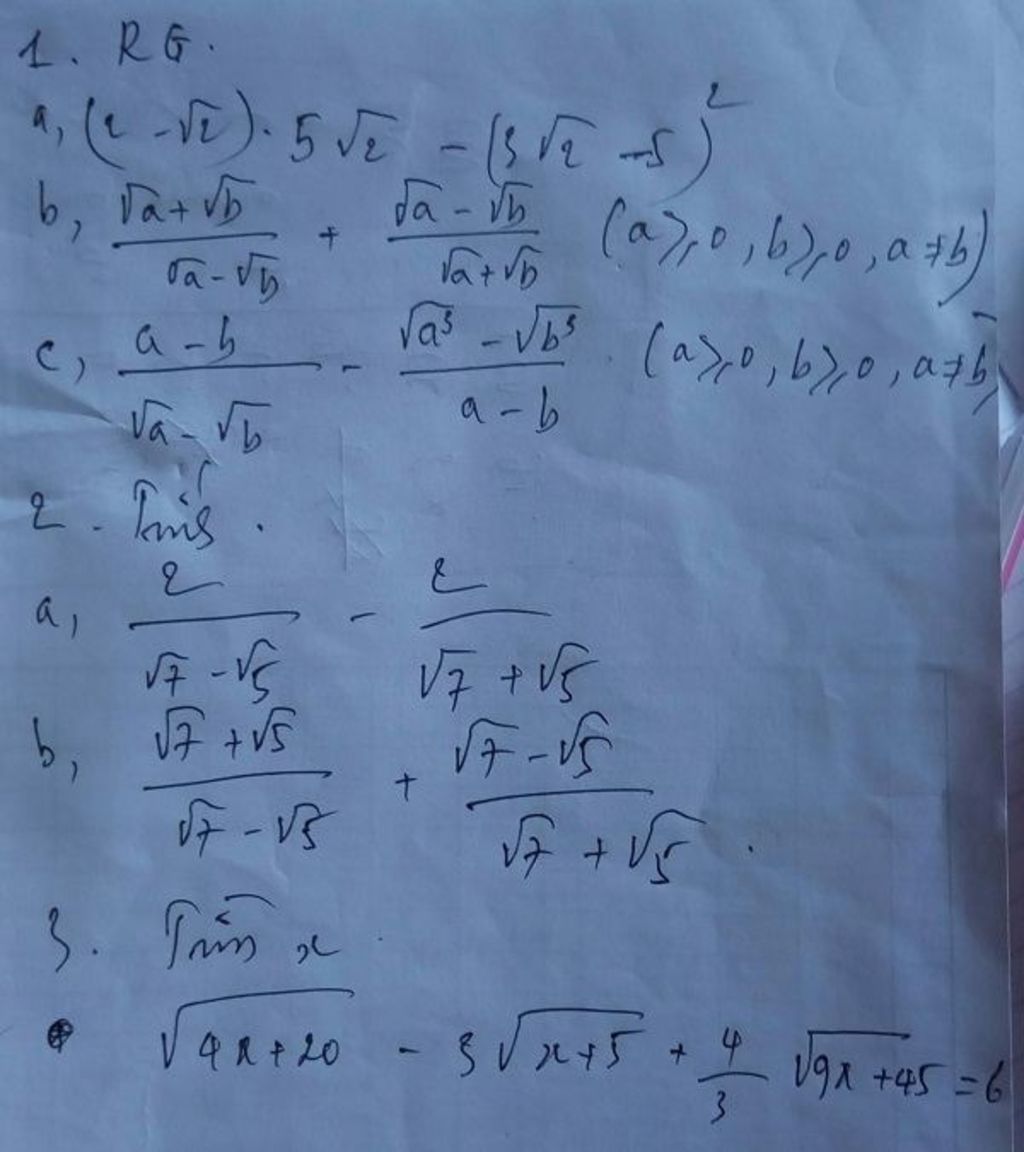 1. RG.
a, (2 - √2). 5√2 - (3√2 - 5)²
b, (√a + √b)/(√a - √b) + (√a - √b)/(√a + √b) (a ≥ 0, b ≥ 0, a ≠ b)
c, (a - b)/(√a - √b) - (√a³ - √b³)/(a - b). (a ≥ 0, b ≥ 0, a ≠ b)
2. Tính.
a, 2/(√7 - √5) - 2/(√7 + √5)
b, (√7 + √5)/(√7 - √5) + (√7 - √5)/(√7 + √5).
3. Tìm x.
√(4x + 20) - 3√(x + 5) + 4/3 √(9x + 45) = 6